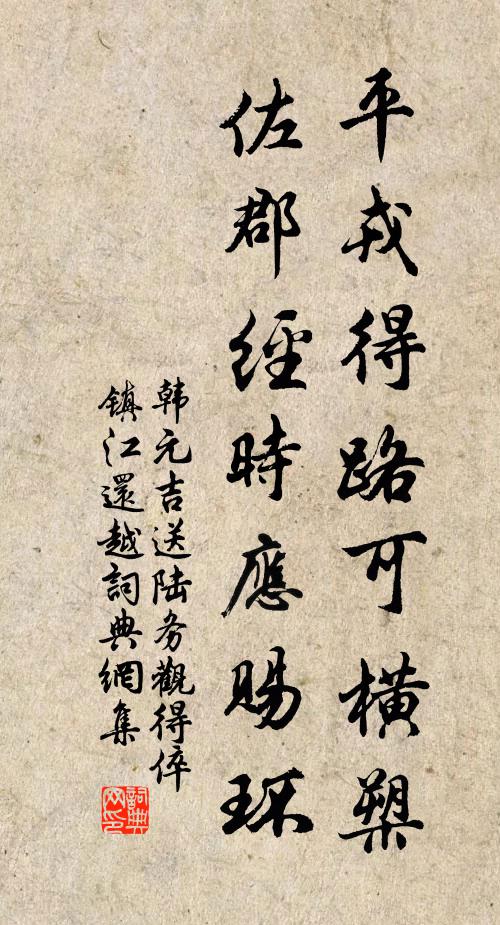 平戎得路可橫槊
佐郡經時應賜环
韩元吉送陆务觀得倅
镇江還越詞典網集
詞典网印